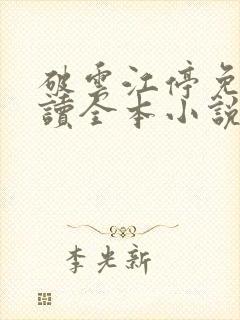 破雲江停免
讀全本小說
李光新